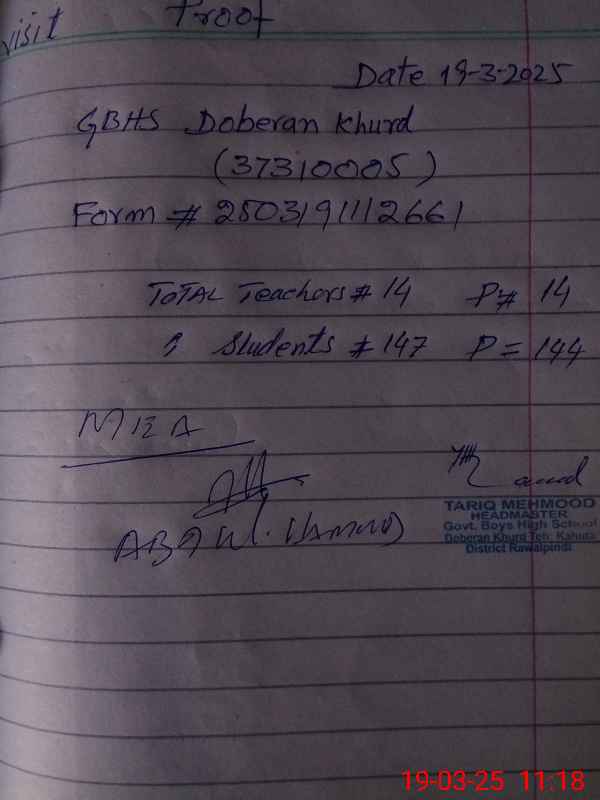 visit Proof
Date 19-3-2025
GBHS Doberan Khurd
(37310005)
Form # 2503191112661
ToTAL Teachers # 14 P# 14
Students # 147 P = 144
MEA
TARIQ MEHMOOD
HEADMASTER
Govt. Boys High School
Doberan Khurd Teh: Kahuta
District Rawalpindi
19-03-25 11:18